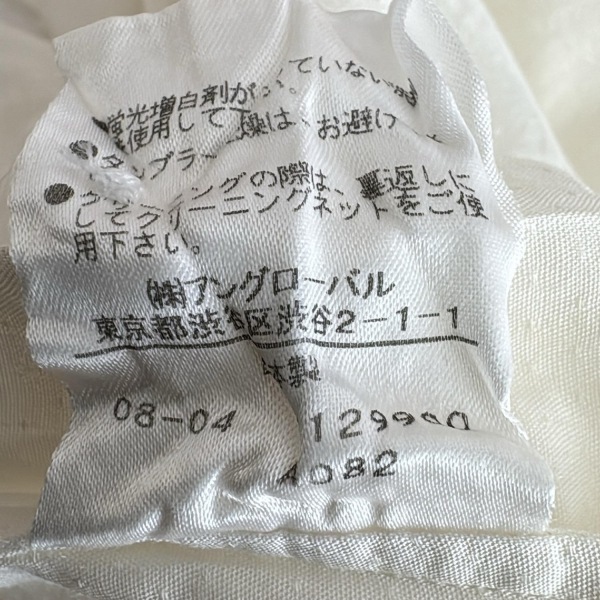 蛍光増白剤が ていない
使用して 。
● タンブラー 燥は、お避け
● クリーニングの際は、裏返しに
してクリーニングネットをご使
用下さい。
㈱アングローバル
東京都渋谷区渋谷2-1-1
日本製
08-04
A082